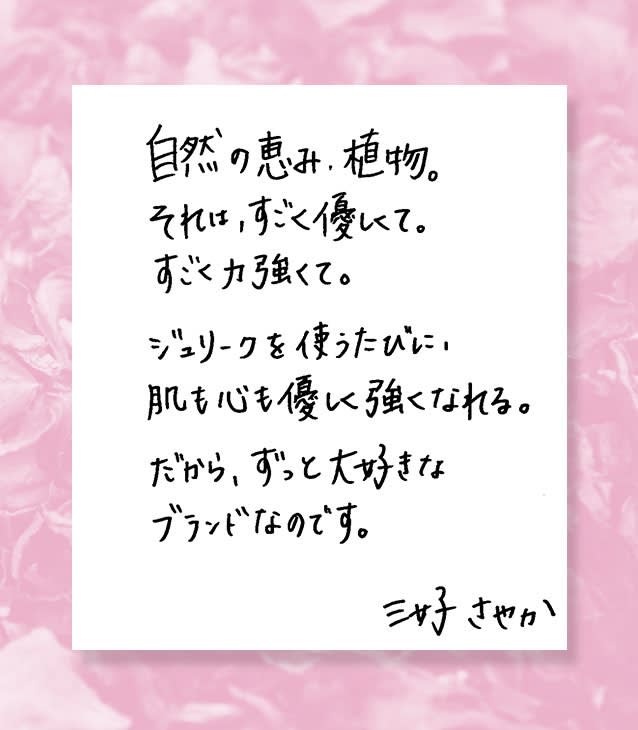 自然の恵み、植物。
それは、すごく優しくて。
すごく力強くて。
ジュリークを使うたびに、
肌も心も優しく強くなれる。
だから、ずっと大好きな
ブランドなのです。
三好 さやか